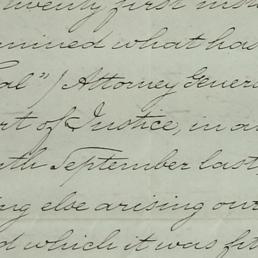 twenty first inst
mined what has
al") Attorney Genera
rt of Justice, in a
th September last,
ng else arising ou
d which it was fit